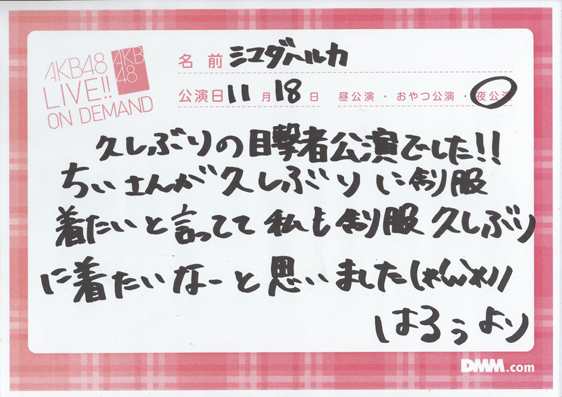 AKB48
LIVE!!
ON DEMAND
AKB
48
名前 シマダハルカ
公演日 11月18日 昼公演・おやつ公演・夜公演
久しぶりの目撃者公演でした!!
ちぃさんが久しぶりに制服
着たいと言ってて私も制服久しぶり
に着たいなーと思いました
はるぅより
DMM.com